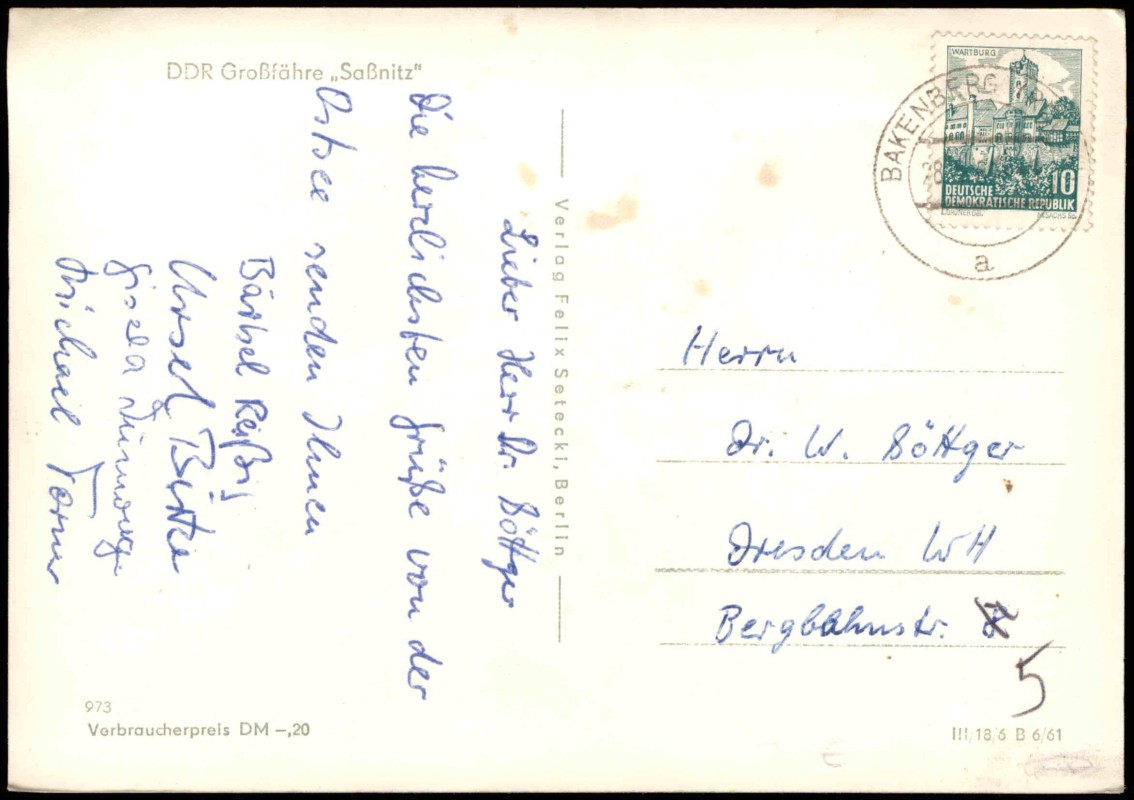 DDR Großfähre „Saßnitz“
Lieber Herr Dr. Böttger
Die herzlichsten Grüße von der
Ostsee senden Ihnen
Bärbel Reißig
Ursel
Gisela
Michael
Verlag Felix Setecki, Berlin
WARTBURG
10
DEUTSCHE
DEMOKRATISCHE REPUBLIK
BAKENBERG
a
Herrn
Dr. W. Böttger
Dresden WH
Bergbahnstr.
5
973
Verbraucherpreis DM –,20
III/18/6 B 6/61